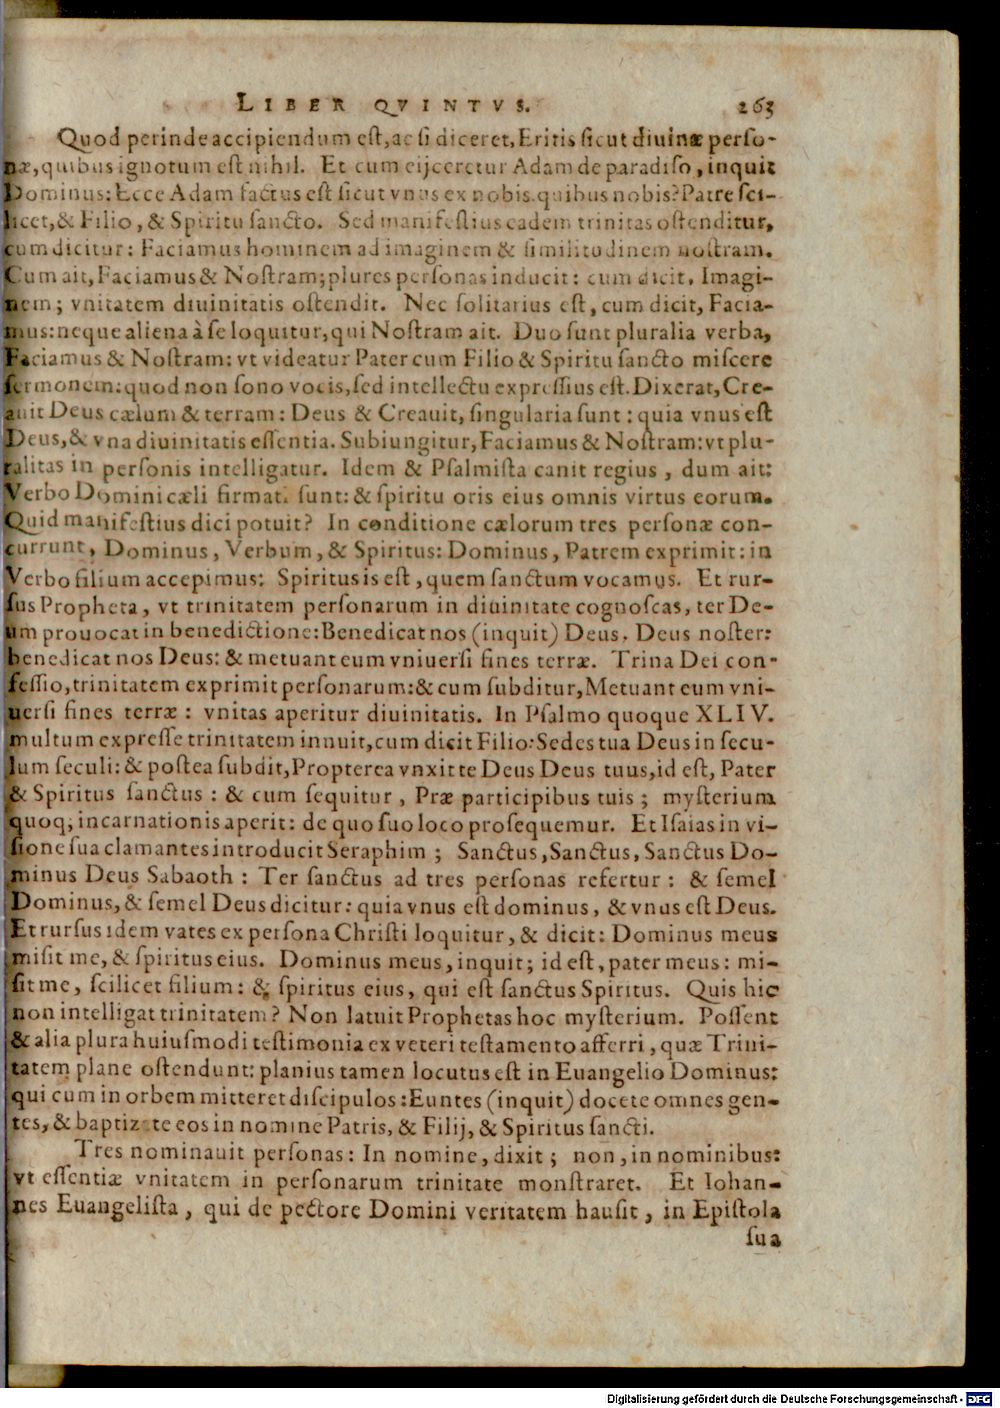 LIBER QVINTVS. 263
Quod perinde accipiendum est, ac si diceret, Eritis sicut diuinæ perso-
næ, quibus ignotum est nihil. Et cum eijceretur Adam de paradiso, inquit
Dominus: Ecce Adam factus est sicut vnus ex nobis. quibus nobis? Patre sci-
licet, & Filio, & Spiritu sancto. Sed manifestius eadem trinitas ostenditur,
cum dicitur: Faciamus hominem ad imaginem & similitudinem nostram.
Cum ait, Faciamus & Nostram; plures personas inducit: cum dicit, Imagi-
nem; vnitatem diuinitatis ostendit. Nec solitarius est, cum dicit, Facia-
mus: neque aliena à se loquitur, qui Nostram ait. Duo sunt pluralia verba,
Faciamus & Nostram: vt videatur Pater cum Filio & Spiritu sancto miscere
sermonem: quod non sono vocis, sed intellectu expressius est. Dixerat, Cre-
auit Deus cælum & terram: Deus & Creauit, singularia sunt: quia vnus est
Deus, & vna diuinitatis essentia. Subiungitur, Faciamus & Nostram: vt plu-
ralitas in personis intelligatur. Idem & Psalmista canit regius, dum ait:
Verbo Domini cæli firmat. sunt: & spiritu oris eius omnis virtus eorum.
Quid manifestius dici potuit? In conditione cælorum tres personæ con-
currunt, Dominus, Verbum, & Spiritus: Dominus, Patrem exprimit: in
Verbo filium accepimus: Spiritus is est, quem sanctum vocamus. Et rur-
sus Propheta, vt trinitatem personarum in diuinitate cognoscas, ter De-
um prouocat in benedictione: Benedicat nos (inquit) Deus, Deus noster:
benedicat nos Deus: & metuant eum vniuersi fines terræ. Trina Dei con-
fessio, trinitatem exprimit personarum: & cum subditur, Metuant eum vni-
uersi fines terræ: vnitas aperitur diuinitatis. In Psalmo quoque XLIV.
multum expresse trinitatem innuit, cum dicit Filio: Sedes tua Deus in secu-
lum seculi: & postea subdit, Propterea vnxit te Deus Deus tuus, id est, Pater
& Spiritus sanctus: & cum sequitur, Præ participibus tuis; mysterium
quoq; incarnationis aperit: de quo suo loco prosequemur. Et Isaias in vi-
sione sua clamantes introducit Seraphim; Sanctus, Sanctus, Sanctus Do-
minus Deus Sabaoth: Ter sanctus ad tres personas refertur: & semel
Dominus, & semel Deus dicitur: quia vnus est dominus, & vnus est Deus.
Et rursus idem vates ex persona Christi loquitur, & dicit: Dominus meus
misit me, & spiritus eius. Dominus meus, inquit; id est, pater meus: mi-
sit me, scilicet filium: & spiritus eius, qui est sanctus Spiritus. Quis hic
non intelligat trinitatem? Non latuit Prophetas hoc mysterium. Possent
& alia plura huiusmodi testimonia ex veteri testamento afferri, quæ Trini-
tatem plane ostendunt: planius tamen locutus est in Euangelio Dominus:
qui cum in orbem mitteret discipulos: Euntes (inquit) docete omnes gen-
tes, & baptizate eos in nomine Patris, & Filij, & Spiritus sancti.
Tres nominauit personas: In nomine, dixit; non, in nominibus:
vt essentiæ vnitatem in personarum trinitate monstraret. Et Iohan-
nes Euangelista, qui de pectore Domini veritatem hausit, in Epistola
sua
Digitalisierung gefördert durch die Deutsche Forschungsgemeinschaft - DFG